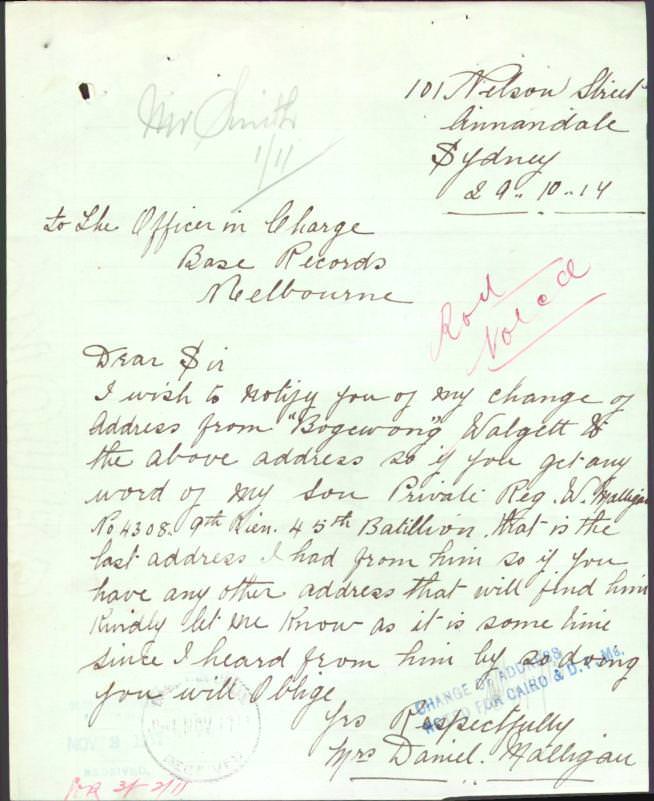 101 Nelson Street
Annandale
Sydney
29.. 10..
Mr Smith
1/11
To The Officer in Charge
Base Records
Melbourne
Noted
Dear Sir
I wish to notify you of my change of
Address from "Bogewong" Walgett to
the above address so if you get any
word of my son Private Reg. W. Malligan
No 4308. 9th Rien. 45th Batillion. that is the
last address I had from him so if you
have any other address that will find him
Kindly let me know as it is some time
since I heard from him by so doing
you will Oblige
Yrs Respectfully
Mrs Daniel.. Malligan
CHANGE OF ADDRESS
NOTED FOR CAIRO & D.
NOV
RECEIVED